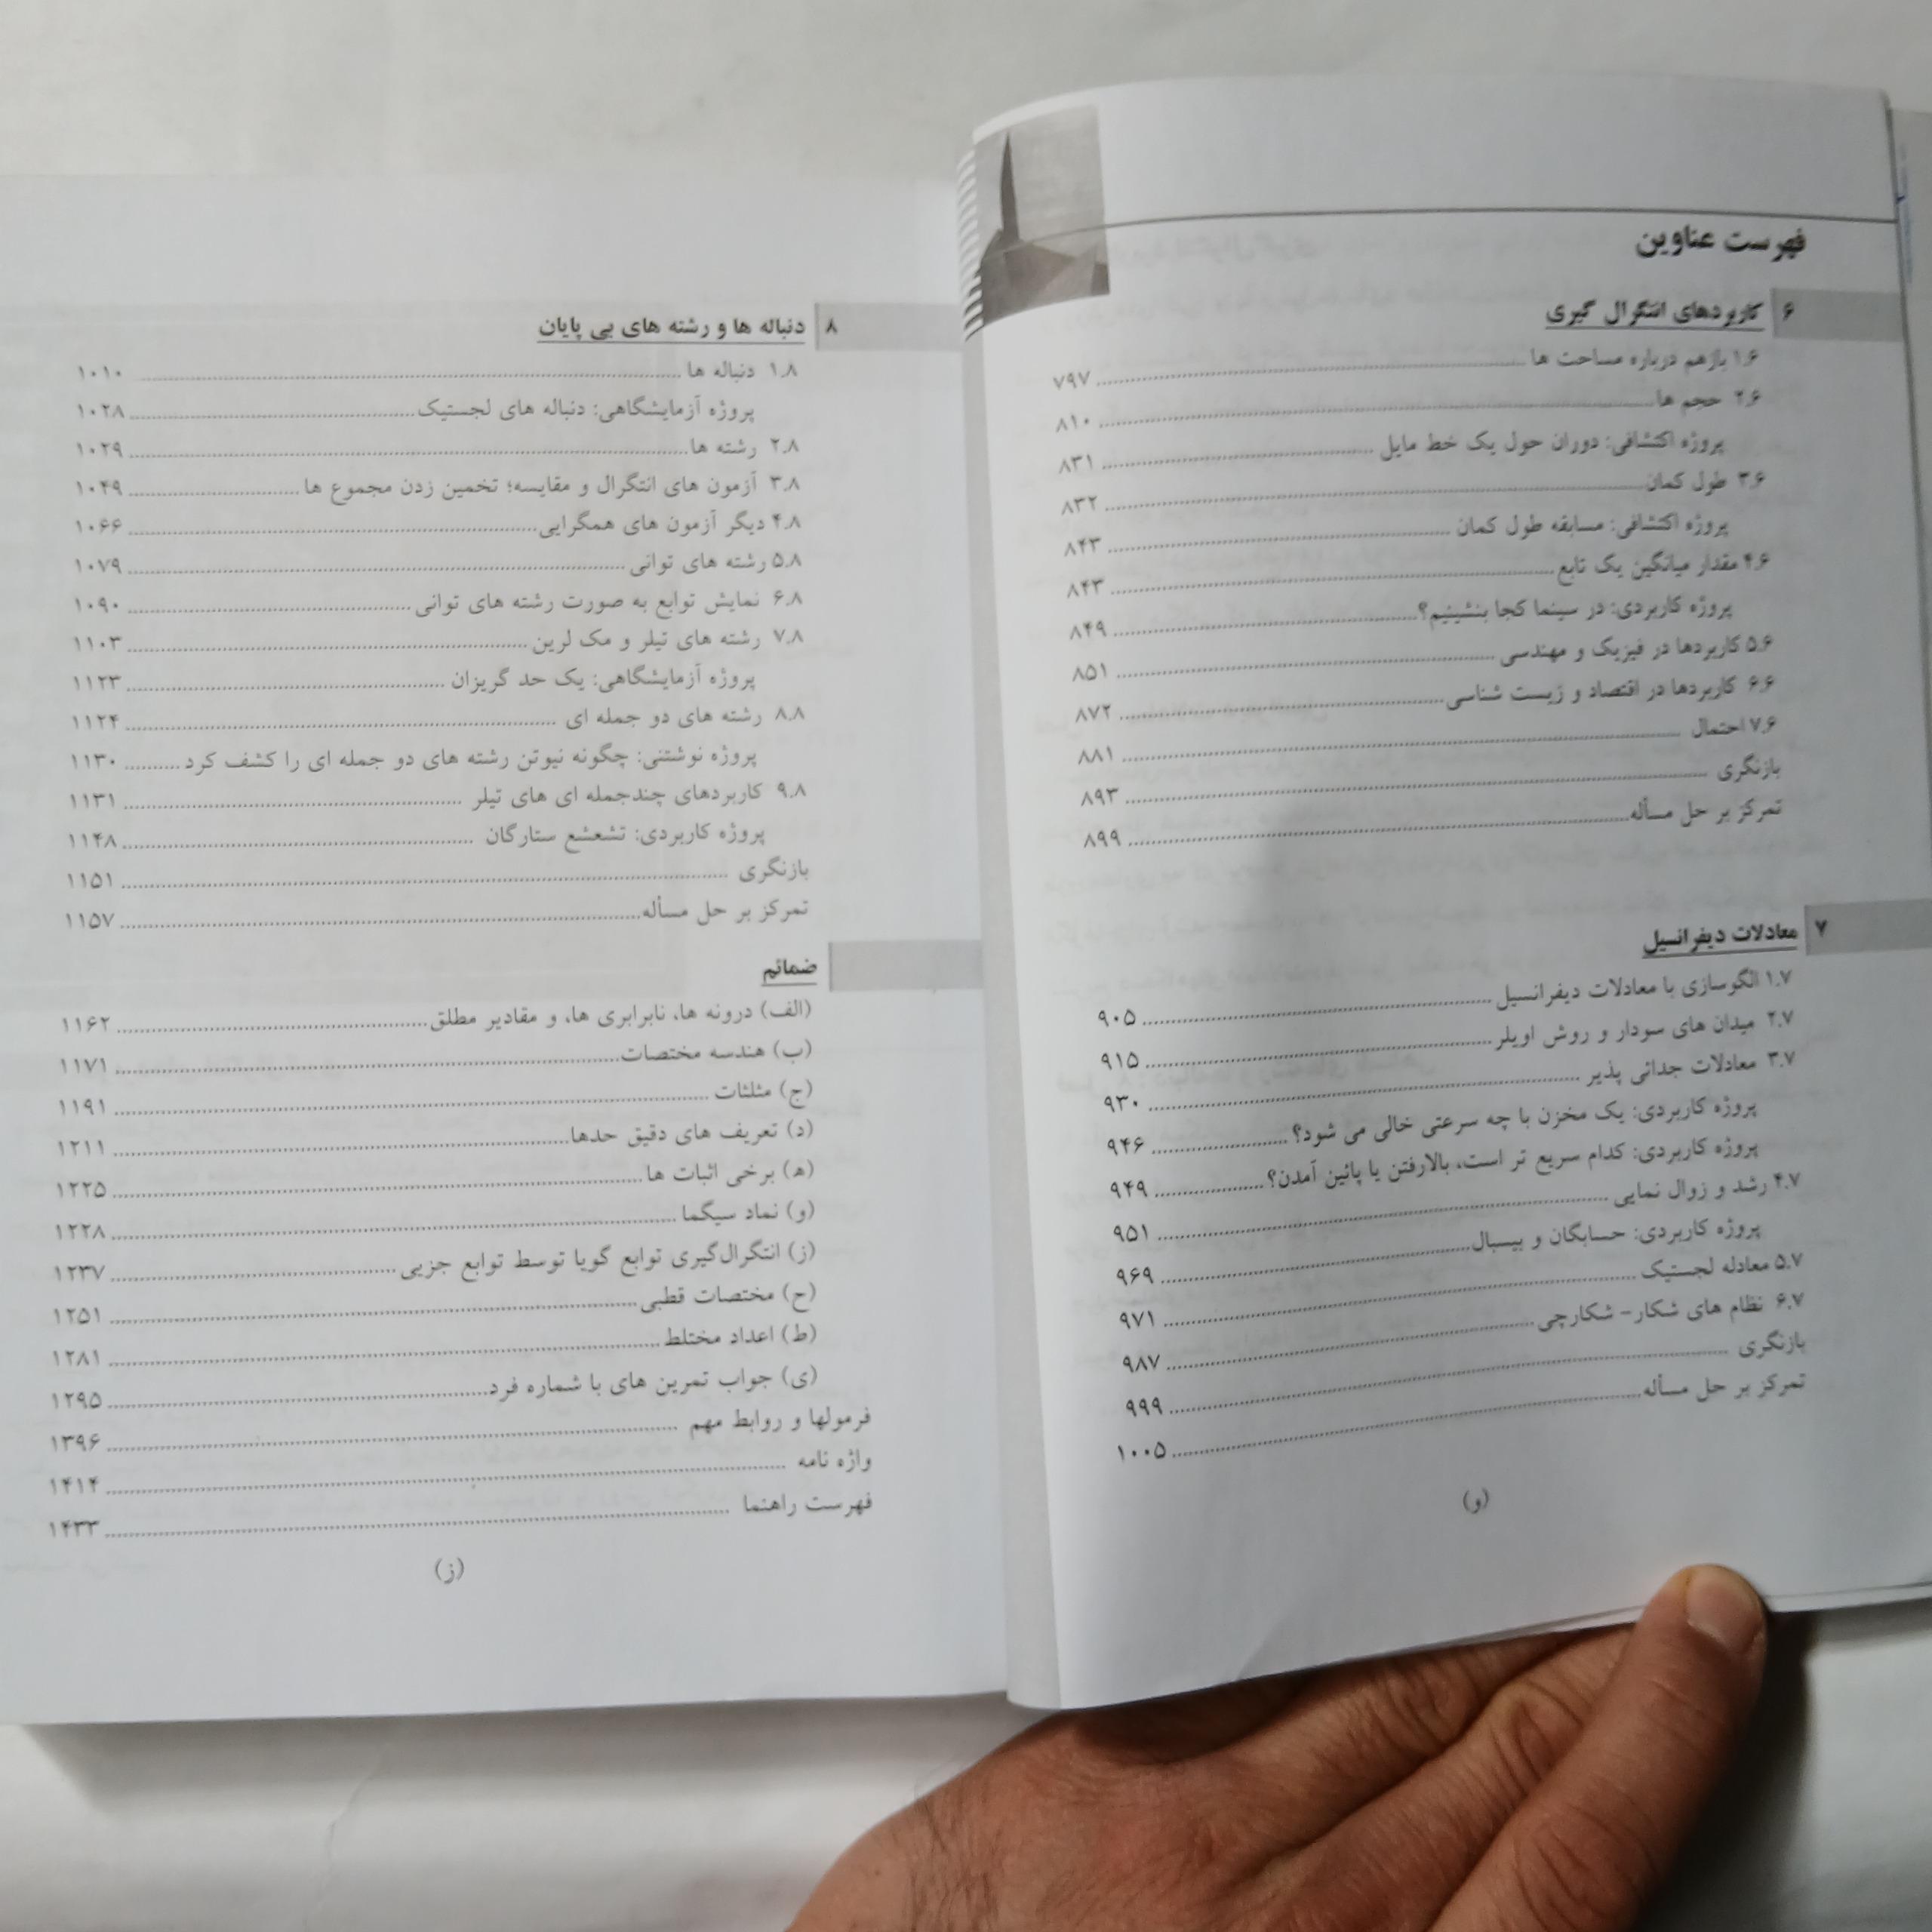 فهرست عناوین
۶ کاربردهای انتگرال گیری
۱.۶ بازهم درباره مساحت ها ........ ۷۹۷
۲.۶ حجم ها ........ ۸۱۰
پروژه اکتشافی: دوران حول یک خط مایل ........ ۸۳۱
۳.۶ طول کمان ........ ۸۳۲
پروژه اکتشافی: مسابقه طول کمان ........ ۸۴۳
۴.۶ مقدار میانگین یک تابع ........ ۸۴۳
پروژه کاربردی: در سینما کجا بنشینیم؟ ........ ۸۴۹
۵.۶ کاربردها در فیزیک و مهندسی ........ ۸۵۱
۶.۶ کاربردها در اقتصاد و زیست شناسی ........ ۸۷۲
۷.۶ احتمال ........ ۸۸۱
بازنگری ........ ۸۹۳
تمرکز بر حل مسأله ........ ۸۹۹
۷ معادلات دیفرانسیل
۱.۷ الگوسازی با معادلات دیفرانسیل ........ ۹۰۵
۲.۷ میدان های سودار و روش اویلر ........ ۹۱۵
۳.۷ معادلات جدائی پذیر ........ ۹۳۰
پروژه کاربردی: یک مخزن با چه سرعتی خالی می شود؟ ........ ۹۴۶
پروژه کاربردی: کدام سریع تر است، بالارفتن یا پائین آمدن؟ ........ ۹۴۹
۴.۷ رشد و زوال نمایی ........ ۹۵۱
پروژه کاربردی: حسابگان و بیسبال ........ ۹۶۹
۵.۷ معادله لجستیک ........ ۹۷۱
۶.۷ نظام های شکار- شکارچی ........ ۹۸۷
بازنگری ........ ۹۹۹
تمرکز بر حل مسأله ........ ۱۰۰۵
(و)
۸ دنباله ها و رشته های بی پایان
۱.۸ دنباله ها ........ ۱۰۱۰
پروژه آزمایشگاهی: دنباله های لجستیک ........ ۱۰۲۸
۲.۸ رشته ها ........ ۱۰۲۹
۳.۸ آزمون های انتگرال و مقایسه؛ تخمین زدن مجموع ها ........ ۱۰۴۹
۴.۸ دیگر آزمون های همگرایی ........ ۱۰۶۶
۵.۸ رشته های توانی ........ ۱۰۷۹
۶.۸ نمایش توابع به صورت رشته های توانی ........ ۱۰۹۰
۷.۸ رشته های تیلر و مک لرین ........ ۱۱۰۳
پروژه آزمایشگاهی: یک حد گریزان ........ ۱۱۲۳
۸.۸ رشته های دو جمله ای ........ ۱۱۲۴
پروژه نوشتنی: چگونه نیوتن رشته های دو جمله ای را کشف کرد ........ ۱۱۳۰
۹.۸ کاربردهای چندجمله ای های تیلر ........ ۱۱۳۱
پروژه کاربردی: تشعشع ستارگان ........ ۱۱۴۸
بازنگری ........ ۱۱۵۱
تمرکز بر حل مسأله ........ ۱۱۵۷
ضمائم
(الف) درونه ها، نابرابری ها، و مقادیر مطلق ........ ۱۱۶۲
(ب) هندسه مختصات ........ ۱۱۷۱
(ج) مثلثات ........ ۱۱۹۱
(د) تعریف های دقیق حدها ........ ۱۲۱۱
(ه) برخی اثبات ها ........ ۱۲۲۵
(و) نماد سیگما ........ ۱۲۲۸
(ز) انتگرال‌گیری توابع گویا توسط توابع جزیی ........ ۱۲۳۷
(ح) مختصات قطبی ........ ۱۲۵۱
(ط) اعداد مختلط ........ ۱۲۸۱
(ی) جواب تمرین های با شماره فرد ........ ۱۲۹۵
فرمولها و روابط مهم ........ ۱۳۹۶
واژه نامه ........ ۱۴۱۴
فهرست راهنما ........ ۱۴۳۳
(ز)